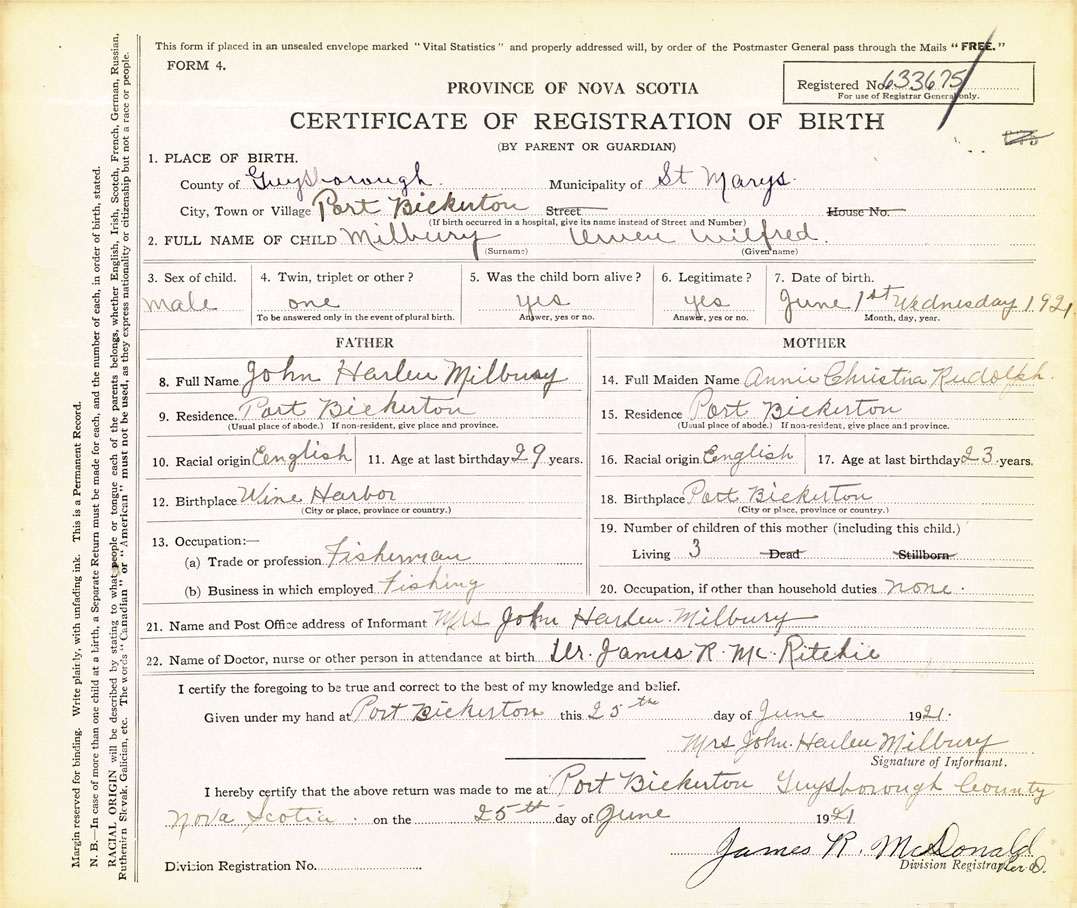 This form if placed in an unsealed envelope marked "Vital Statistics" and properly addressed will, by order of the Postmaster General pass through the Mails "FREE."
FORM 4.
Registered No. 633675
For use of Registrar General only.
PROVINCE OF NOVA SCOTIA
CERTIFICATE OF REGISTRATION OF BIRTH
(BY PARENT OR GUARDIAN)
1. PLACE OF BIRTH.
County of Guysborough. Municipality of St Marys.
City, Town or Village Port Bickerton Street House No.
(If birth occurred in a hospital, give its name instead of Street and Number)
2. FULL NAME OF CHILD Milbury Wilfred.
(Surname) (Given name)
3. Sex of child. 4. Twin, triplet or other? 5. Was the child born alive? 6. Legitimate? 7. Date of birth.
male one yes yes June 1st Wednesday 1921
To be answered only in the event of plural birth. Answer, yes or no. Answer, yes or no. Month, day, year.
FATHER
8. Full Name John Harlen Milbury
9. Residence. Port Bickerton
(Usual place of abode.) If non-resident, give place and province.
10. Racial origin English 11. Age at last birthday 29 years.
12. Birthplace Wine Harbor
(City or place, province or country.)
13. Occupation:—
(a) Trade or profession Fisherman
(b) Business in which employed Fishing
MOTHER
14. Full Maiden Name Annie Christna Rudolph.
15. Residence Port Bickerton
(Usual place of abode.) If non-resident, give place and province.
16. Racial origin English 17. Age at last birthday 23 years.
18. Birthplace Port Bickerton
(City or place, province or country.)
19. Number of children of this mother (including this child.)
Living 3 Dead Stillborn
20. Occupation, if other than household duties none.
21. Name and Post Office address of Informant Mrs John Harlen Milbury
22. Name of Doctor, nurse or other person in attendance at birth Dr. James R. Mc Ritchie
I certify the foregoing to be true and correct to the best of my knowledge and belief.
Given under my hand at Port Bickerton this 25th day of June 1921.
Mrs John Harlen Milbury
Signature of Informant.
I hereby certify that the above return was made to me at Port Bickerton Guysborough County
Nova Scotia. on the 25th day of June 1921
James R. McDonald
Division Registrar
Division Registration No.
Margin reserved for binding. Write plainly, with unfading ink. This is a Permanent Record.
N. B.—In case of more than one child at a birth, a Separate Return must be made for each, and the number of each, in order of birth, stated.
RACIAL ORIGIN will be described by stating to what people or tongue each of the parents belongs, whether English, Irish, Scotch, French, German, Russian,
Ruthenian, Slovak, Galician, etc. The words "Canadian" or "American" must not be used, as they express nationality or citizenship but not a race or people.